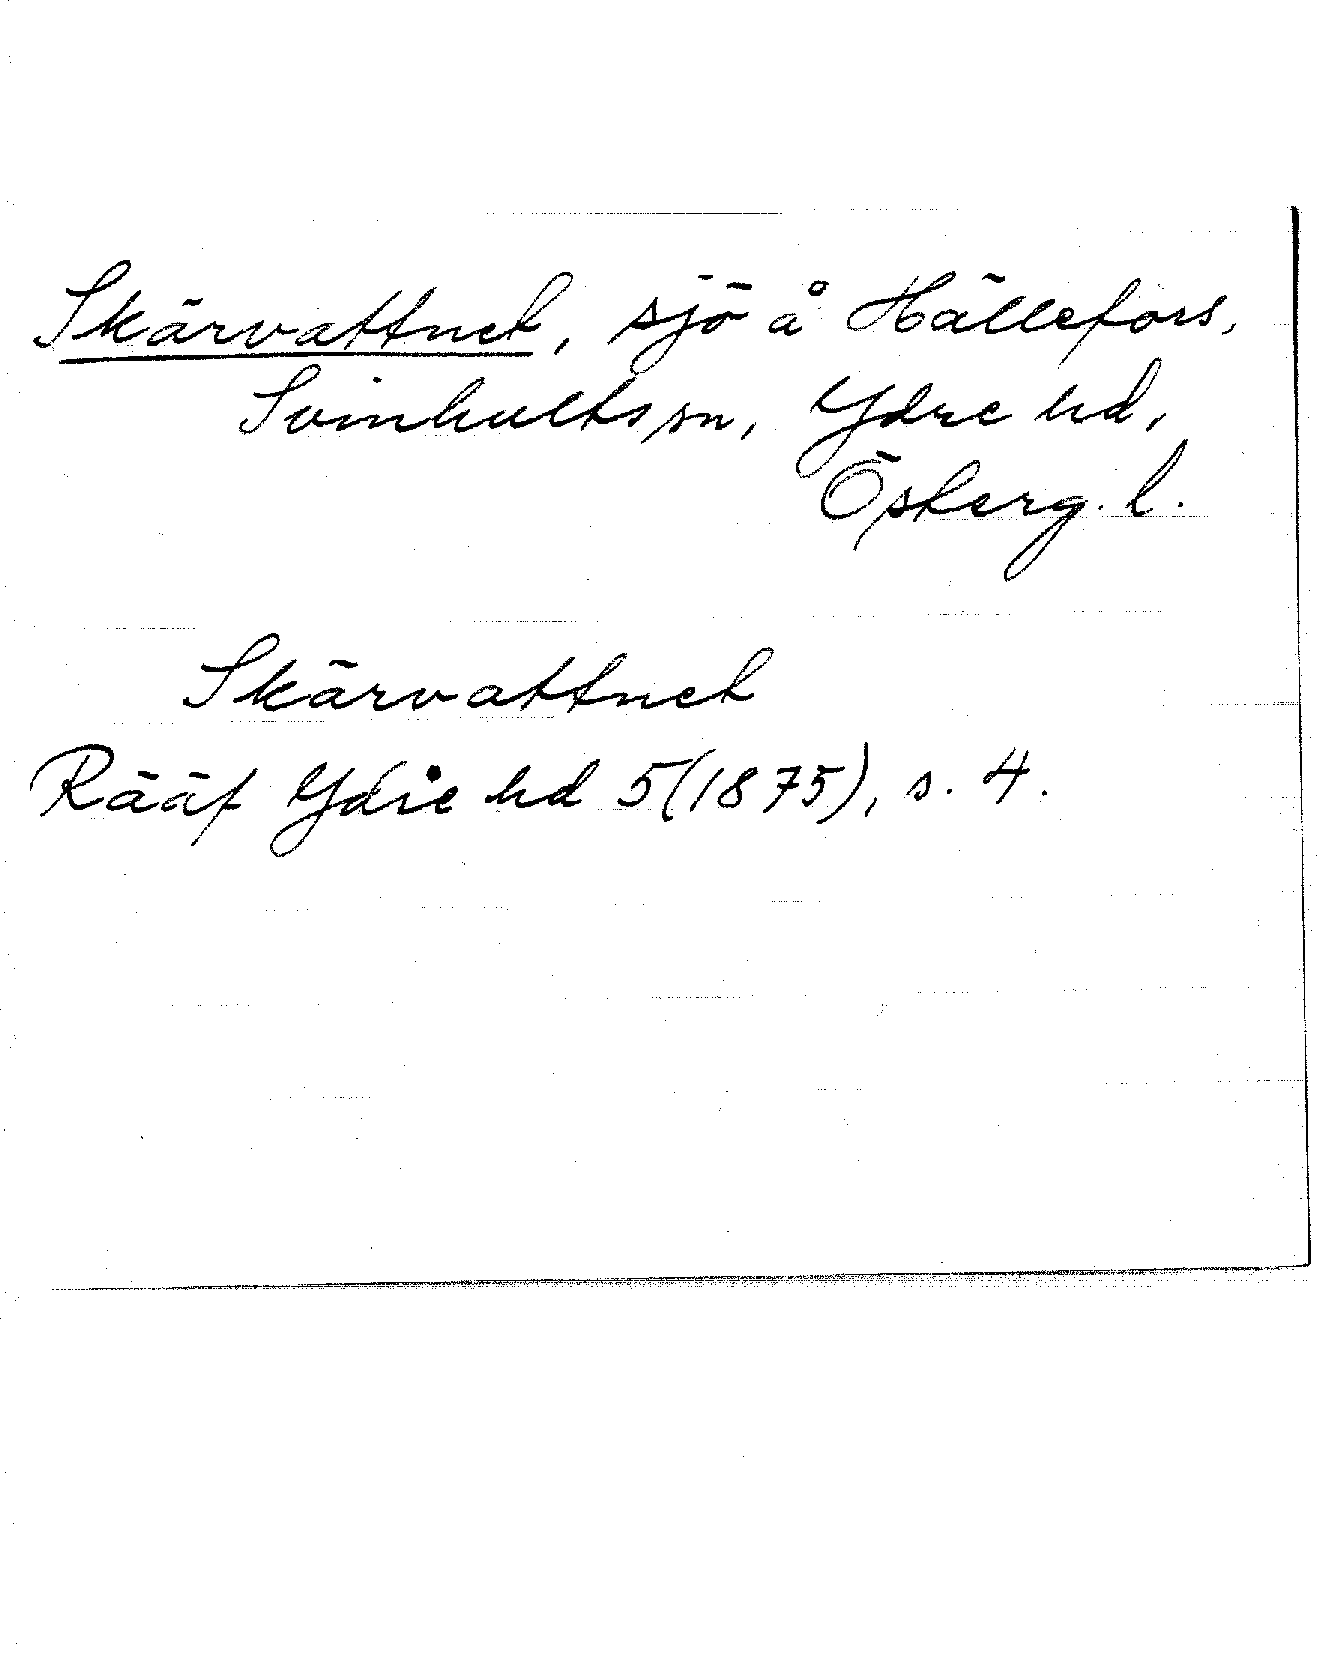 Skärvattnet, sjö å Hällefors,
Svinhults sn, Ydre hd,
Österg. l.
Skärvattnet
Rääf Ydre hd 5(1875), s. 4.